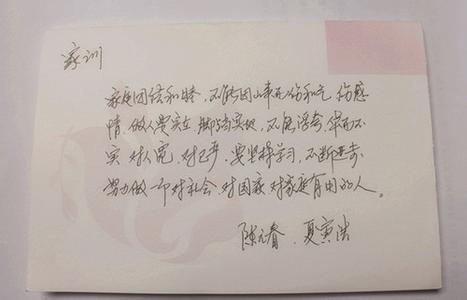 家训
家庭团结和睦,不能因小事而伤和气,伤感
情,做人要实在,脚踏实地,不能浮夸,华而不
实,对人宽,对己严,要坚持学习,不断进步
努力做一个对社会、对国家、对家庭有用的人。
陈元春、夏寅